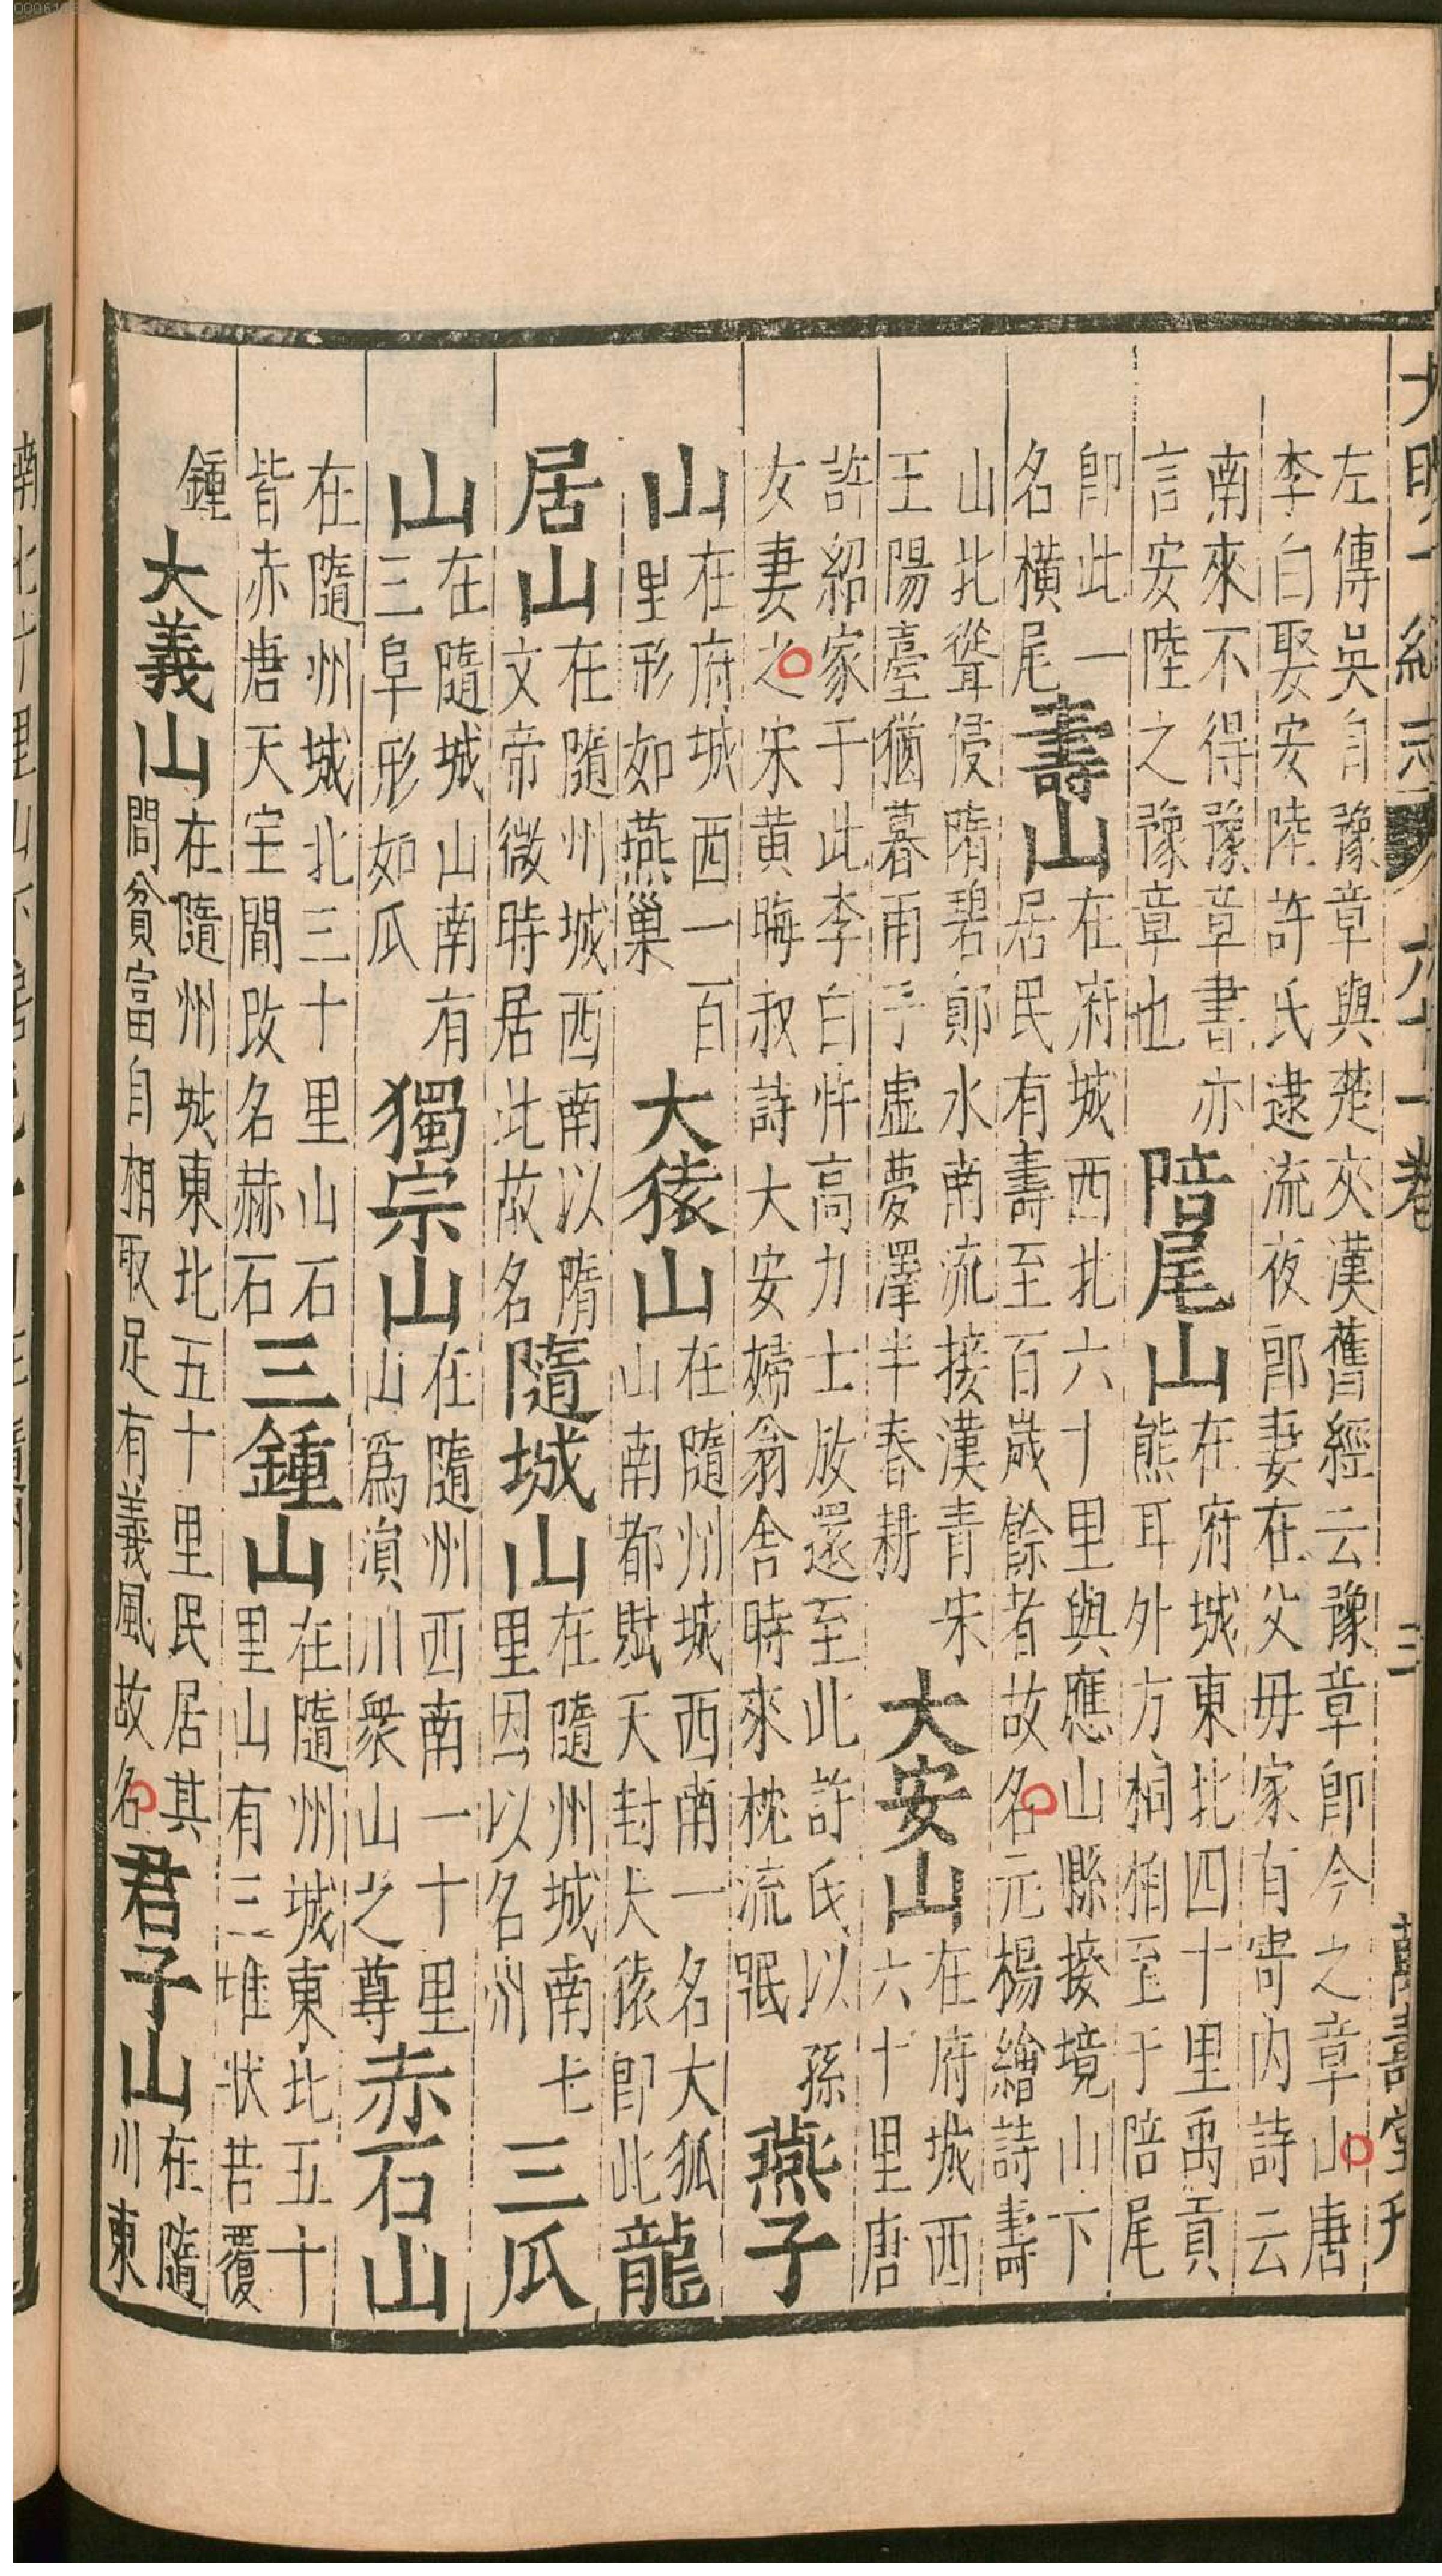 大明一統志 六十一卷 三 萬壽堂刊
左傳吳自豫章與楚夾漢舊經云豫章即今之章山唐
李白娶安陸許氏逮流夜郎妻在父毋家有寄內詩云
南來不得豫章書亦
言安陸之豫章也
陪尾山
在府城東北四十里禹貢
熊耳外方桐栢至于陪尾
即此一
名橫尾
壽山
在府城西北六十里與應山縣接境山下
居民有壽至百歲餘者故名元楊繪詩壽
山北聳侵隋碧鄖水南流接漢青宋
王陽臺猶暮雨子虛夢澤半春耕
大安山
在府城西
六十里唐
許紹家于此李白忤高力士放還至此許氏以孫
女妻之宋黃晦叔詩大安婦翁舍時來枕流眠
燕子
山
在府城西一百
里形如燕巢
大猿山
在隨州城西南一名大狐
山南都賦天封大猿即此
龍
居山
在隨州城西南以隋
文帝微時居此故名
隨城山
在隨州城南七
里因以名州
三瓜
山
在隨城山南有
三阜形如瓜
獨宗山
在隨州西南一十里
山爲溳川衆山之尊
赤石山
在隨州城北三十里山石
皆赤唐天宝間改名赫石
三鍾山
在隨州城東北五十
里山有三堆狀若覆
鍾
大義山
在隨州城東北五十里民居其
間貧富自相取足有義風故名
君子山
在隨
川東